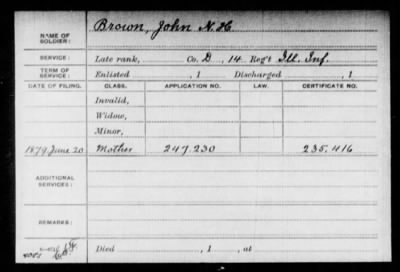 NAME OF SOLDIER: Brown, John N. H.
SERVICE: Late rank, Co. D, 14 Reg't Ill. Inf.
TERM OF SERVICE: Enlisted , 1 Discharged , 1
DATE OF FILING. CLASS. APPLICATION NO. LAW. CERTIFICATE NO.
Invalid,
Widow,
Minor,
1879 June 20 Mother 247.230 235,416
ADDITIONAL SERVICES:
REMARKS:
Died , 1 , at